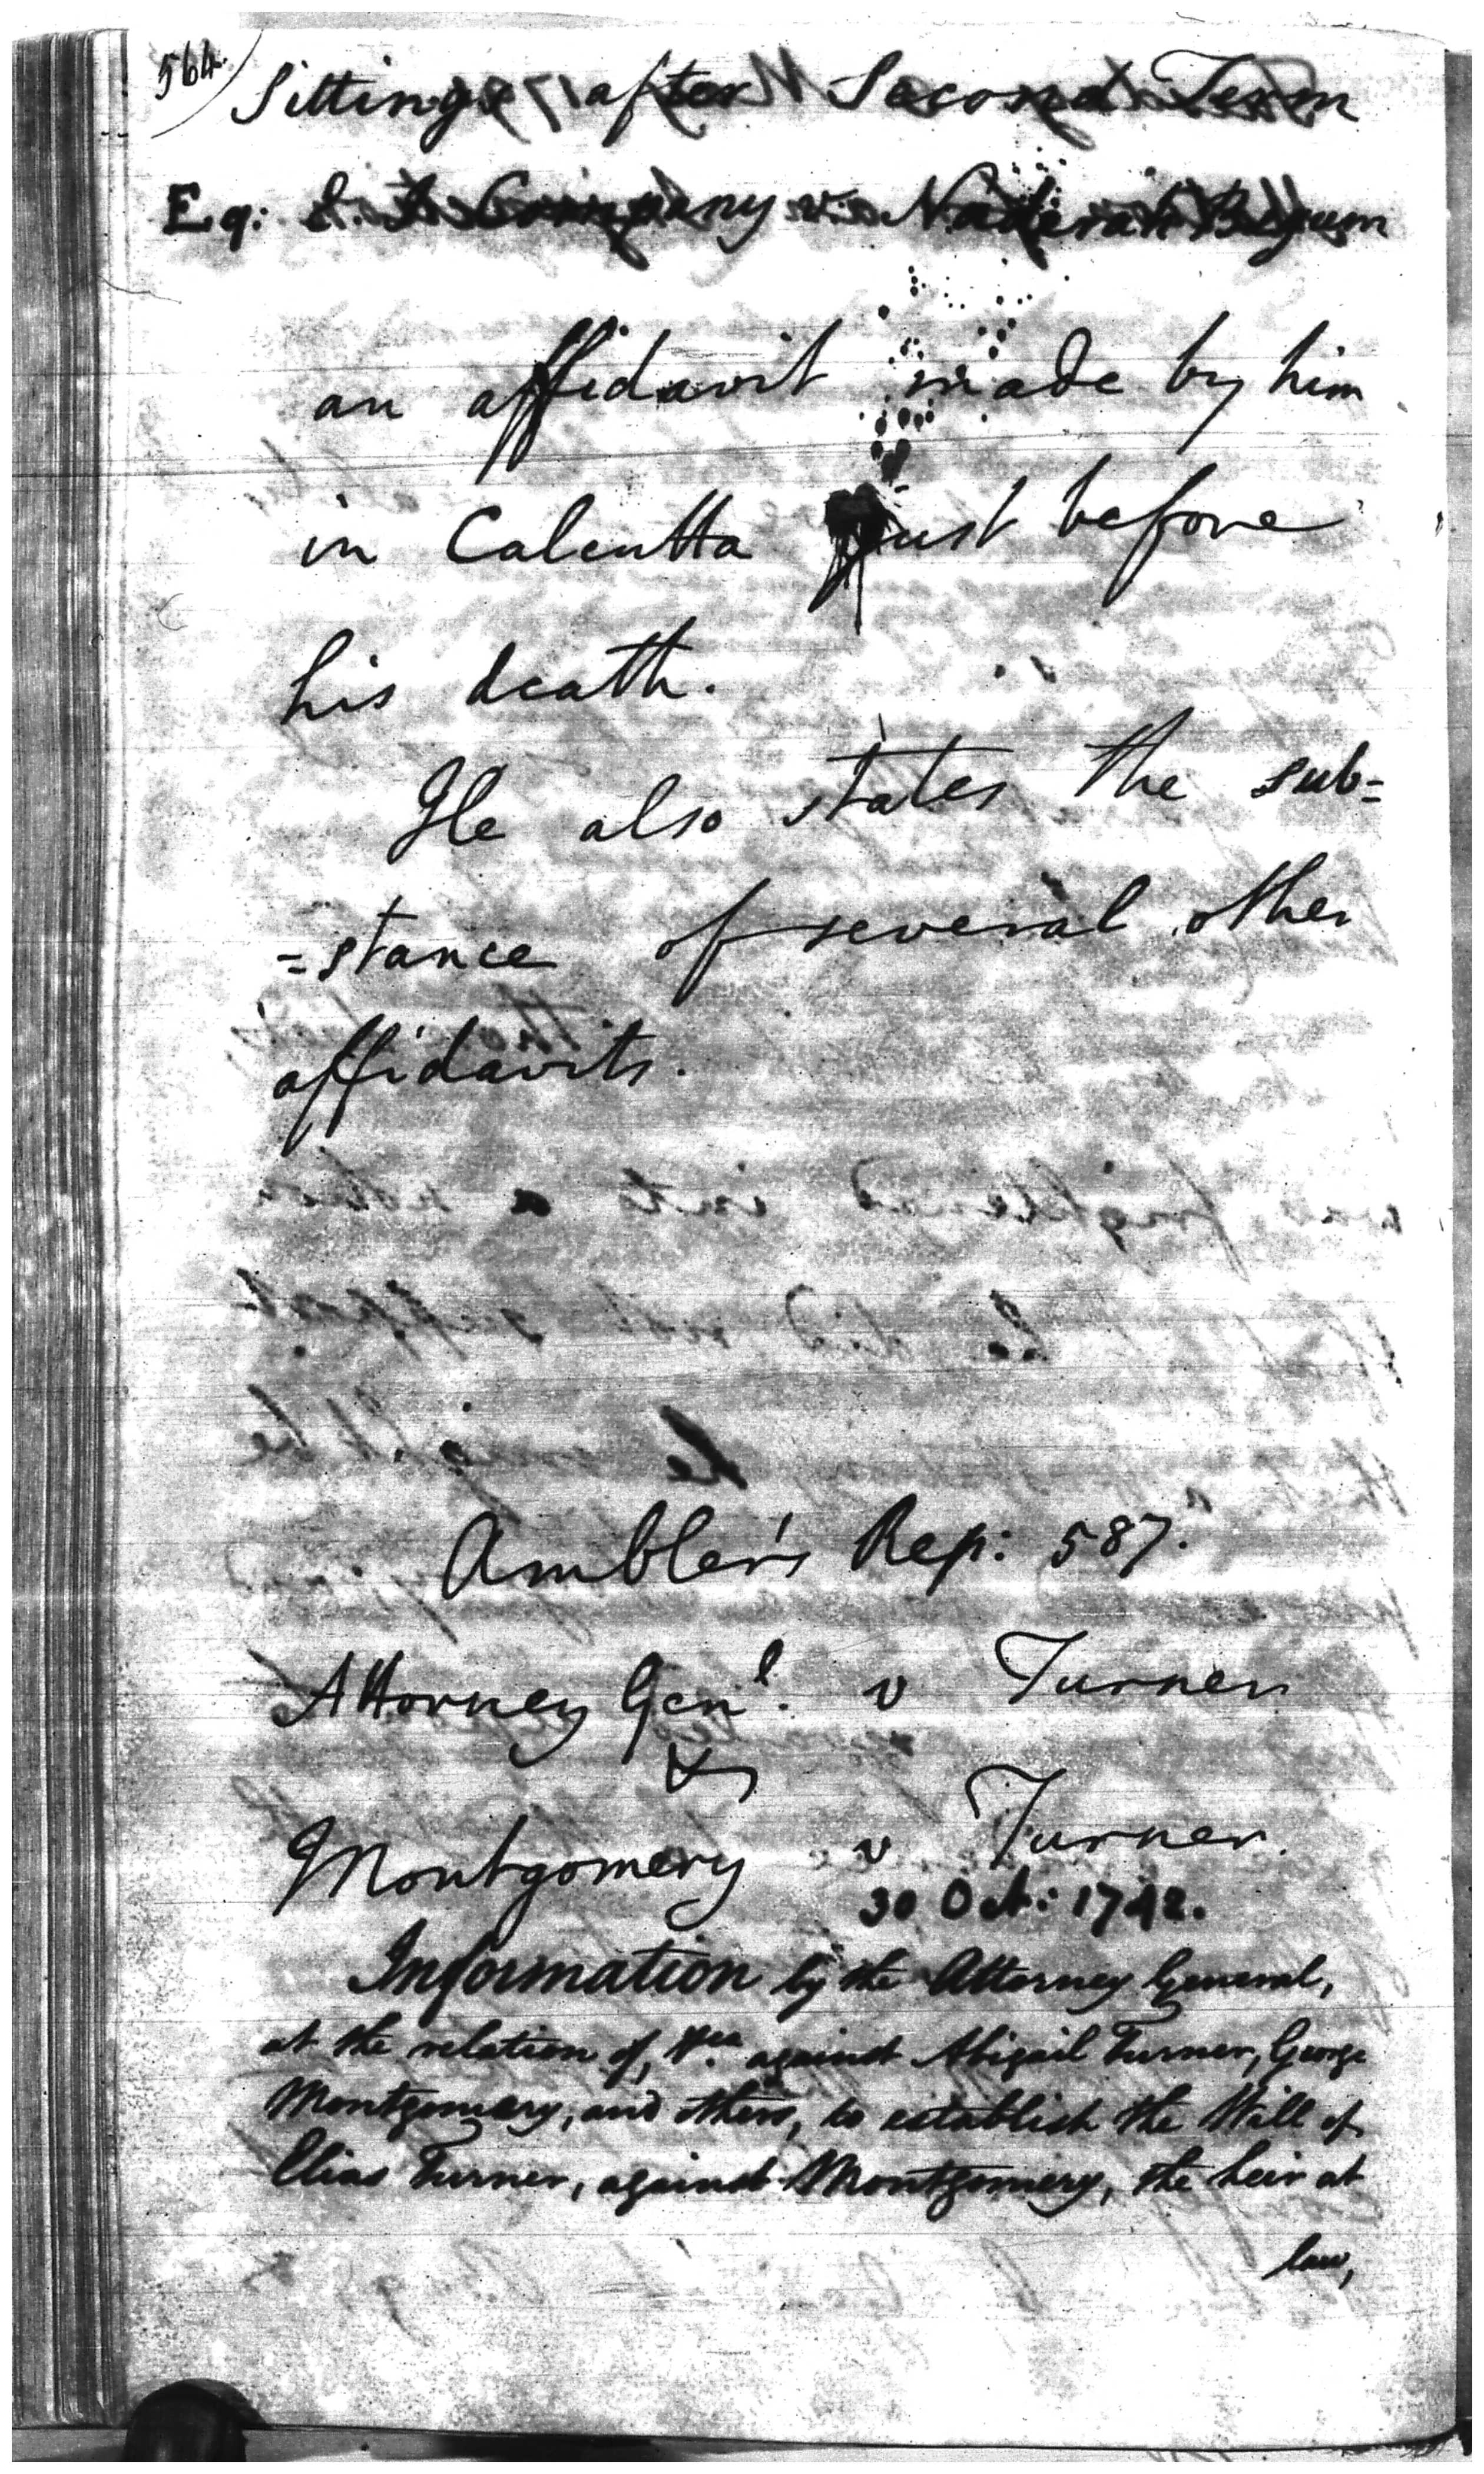 564.
Sittings after Second Term
Eq: E. I. Company v. Naderah Begum
an affidavit made by him
in Calcutta just before
his death.
He also states the sub=
=stance of several other
affidavits.
Ambler's Rep: 587.
Attorney Genl. v Turner
&
Montgomery v Turner.
30 Oct: 1742.
Information by the Attorney General,
at the relation of, &ca. against Abigail Turner, George
Montgomery, and others, to establish the Will of
Elias Turner, against Montgomery, the heir at
law,